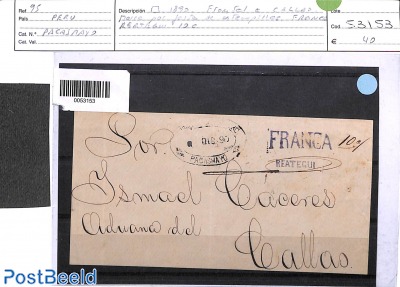 Ref. 95
País PERU
Cat. N.º PACASMAYO
Cat. Val.
Descripción 1890. a CALLAO
por de estampillas. FRANCA
REATEGUI 10c
Lote
Cod. 53153
€ 40
0053153
DIC 90
PACASMAYO
FRANCA
REATEGUI
10c/
Sor.
Ismael Cáceres
Aduana del
Callao.
PostBeeld